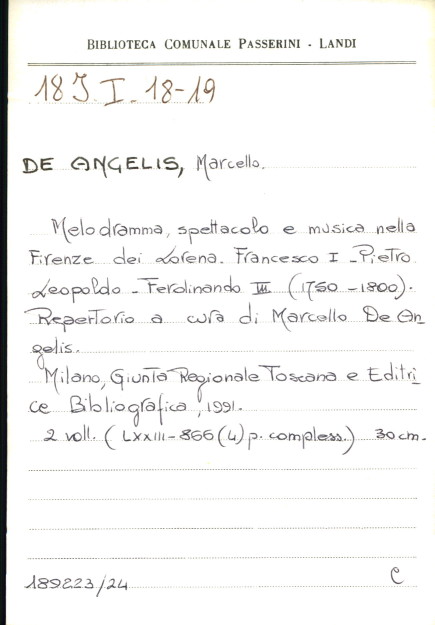 BIBLIOTECA COMUNALE PASSERINI - LANDI
18 J. I. 18-19
DE ANGELIS, Marcello.
Melodramma, spettacolo e musica nella
Firenze dei Lorena. Francesco I - Pietro
Leopoldo - Ferdinando III (1750 - 1800).
Repertorio a cura di Marcello De An-
gelis.
Milano, Giunta Regionale Toscana e Editri-
ce Bibliografica, 1991.
2 voll. (LXXIII - 866 (4) p. compless.) 30 cm.
189223/24 C